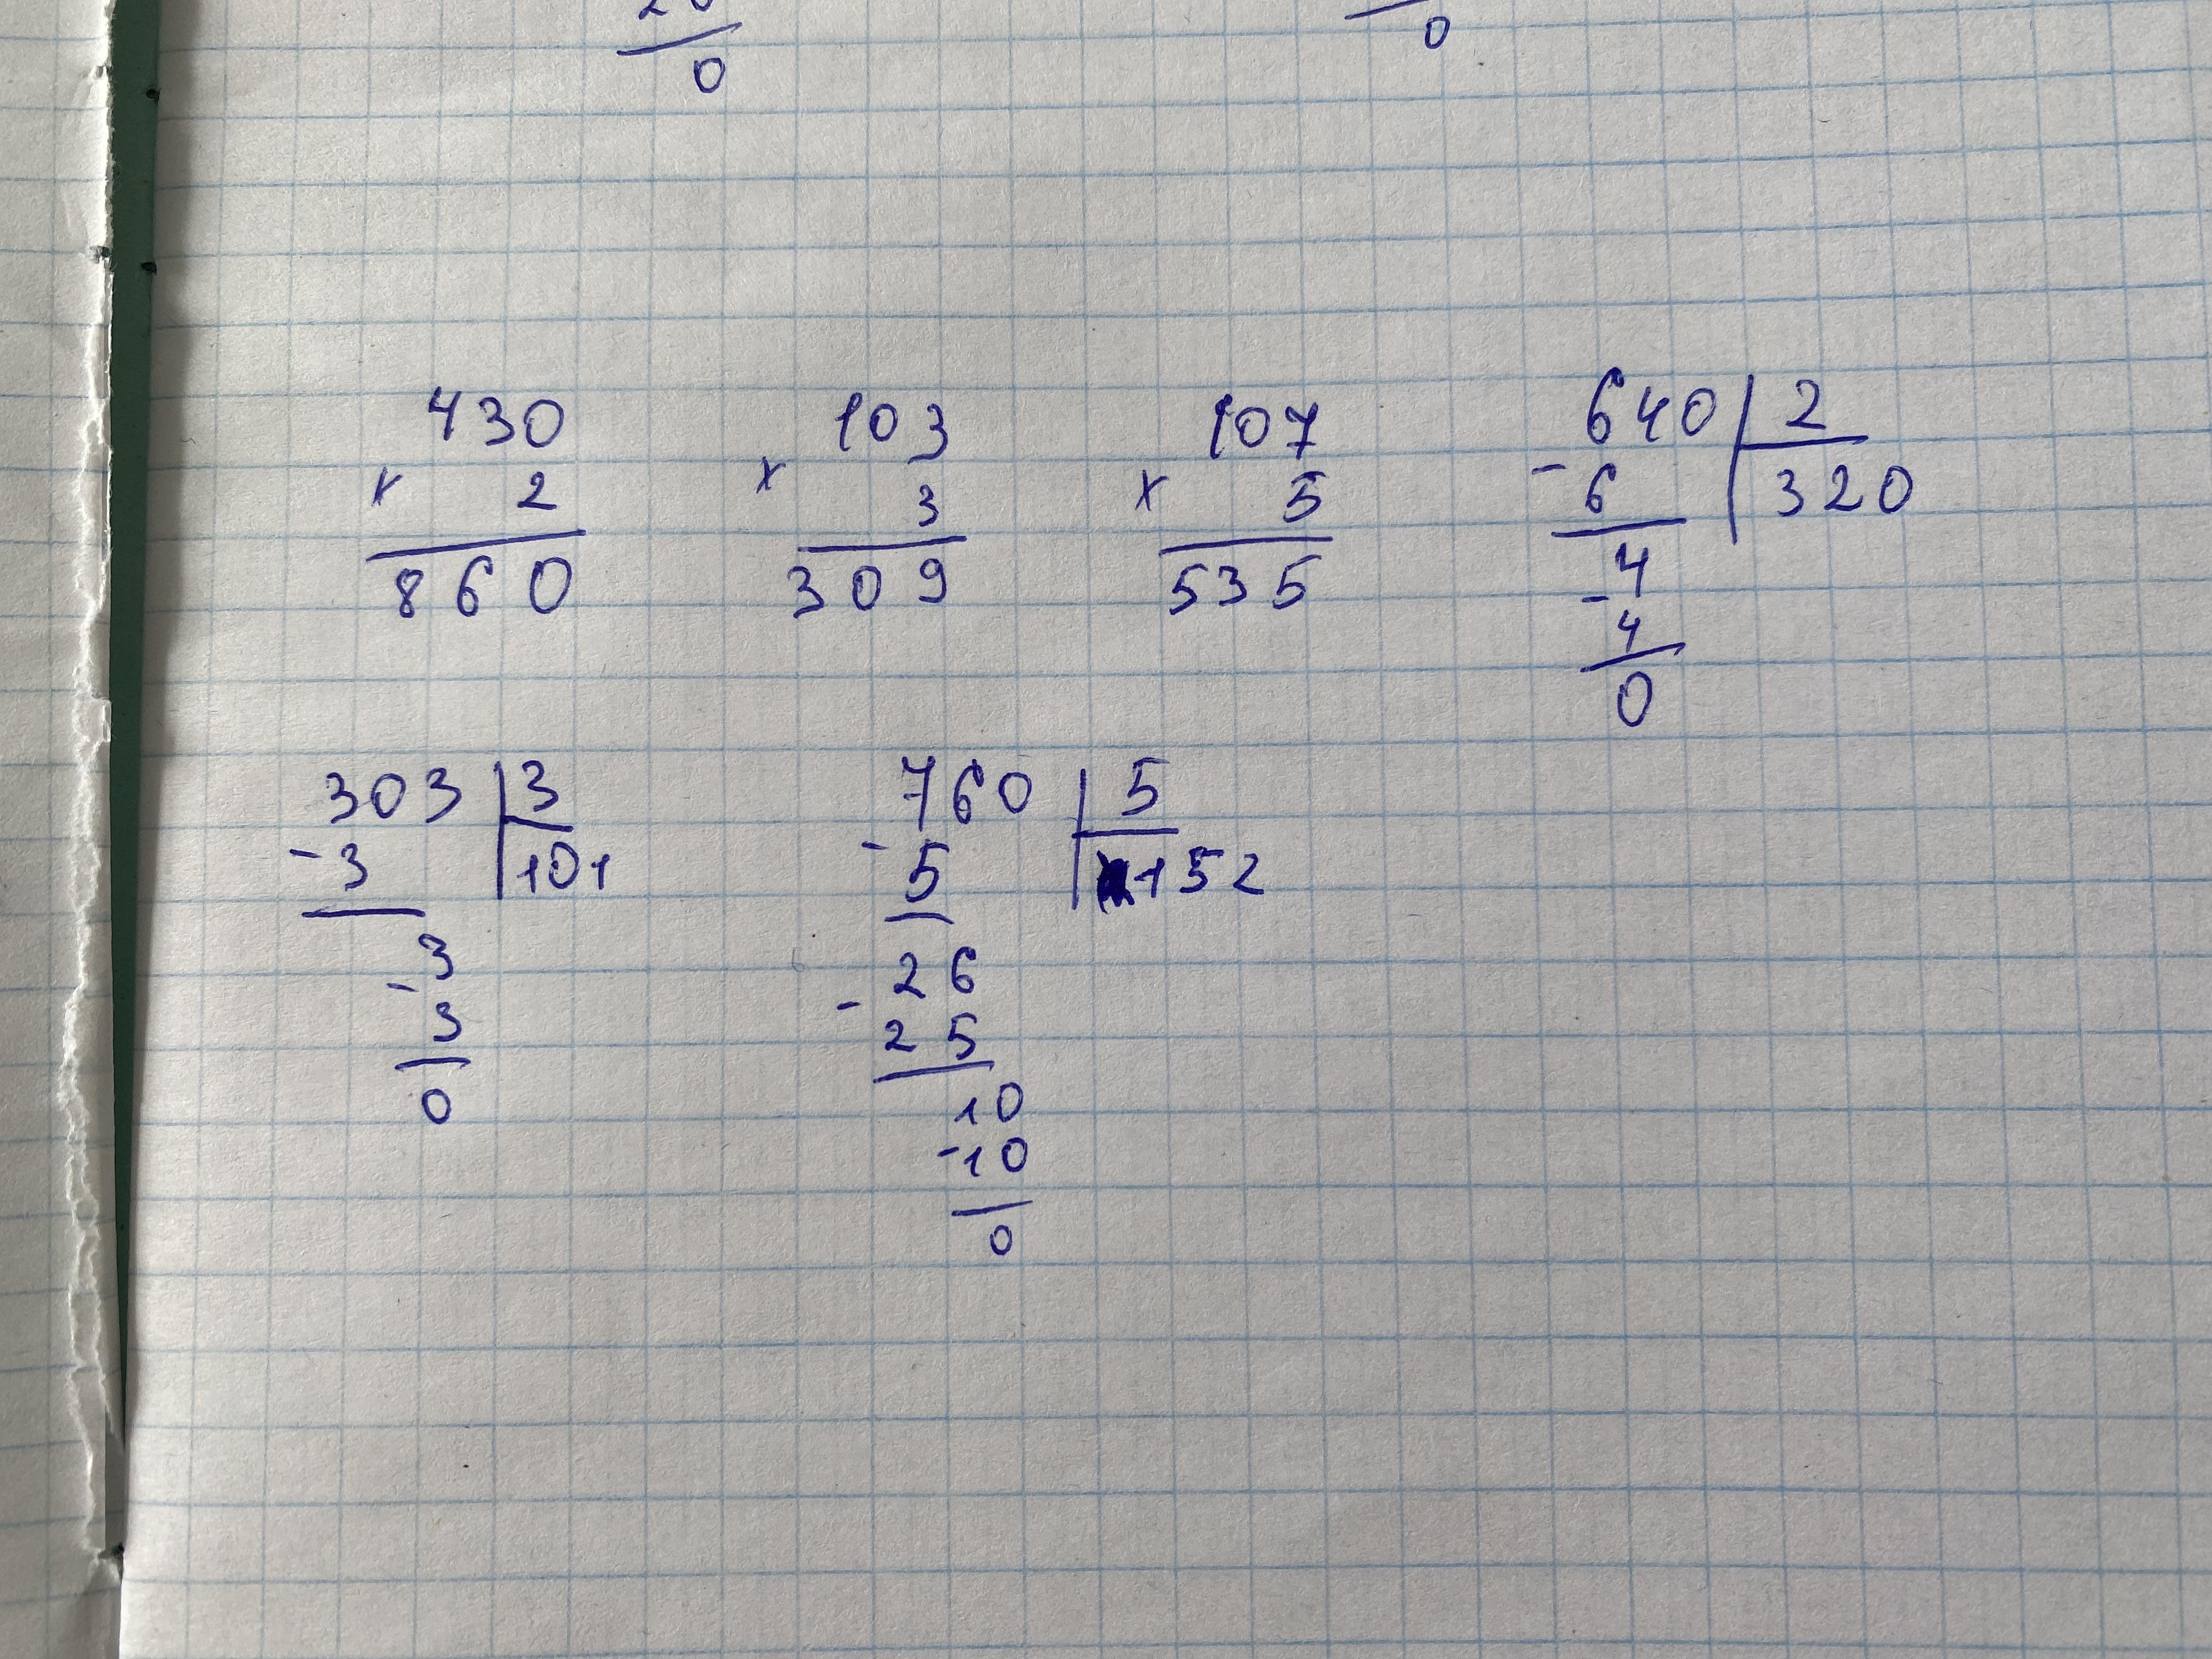 20
0 0
430 103 107 640 2
× 2 × 3 × 5 - 6 320
860 309 535 4
- 4
0
303 3 760 5
- 3 101 - 5 152
3 26
- 3 - 25
0 10
- 10
0